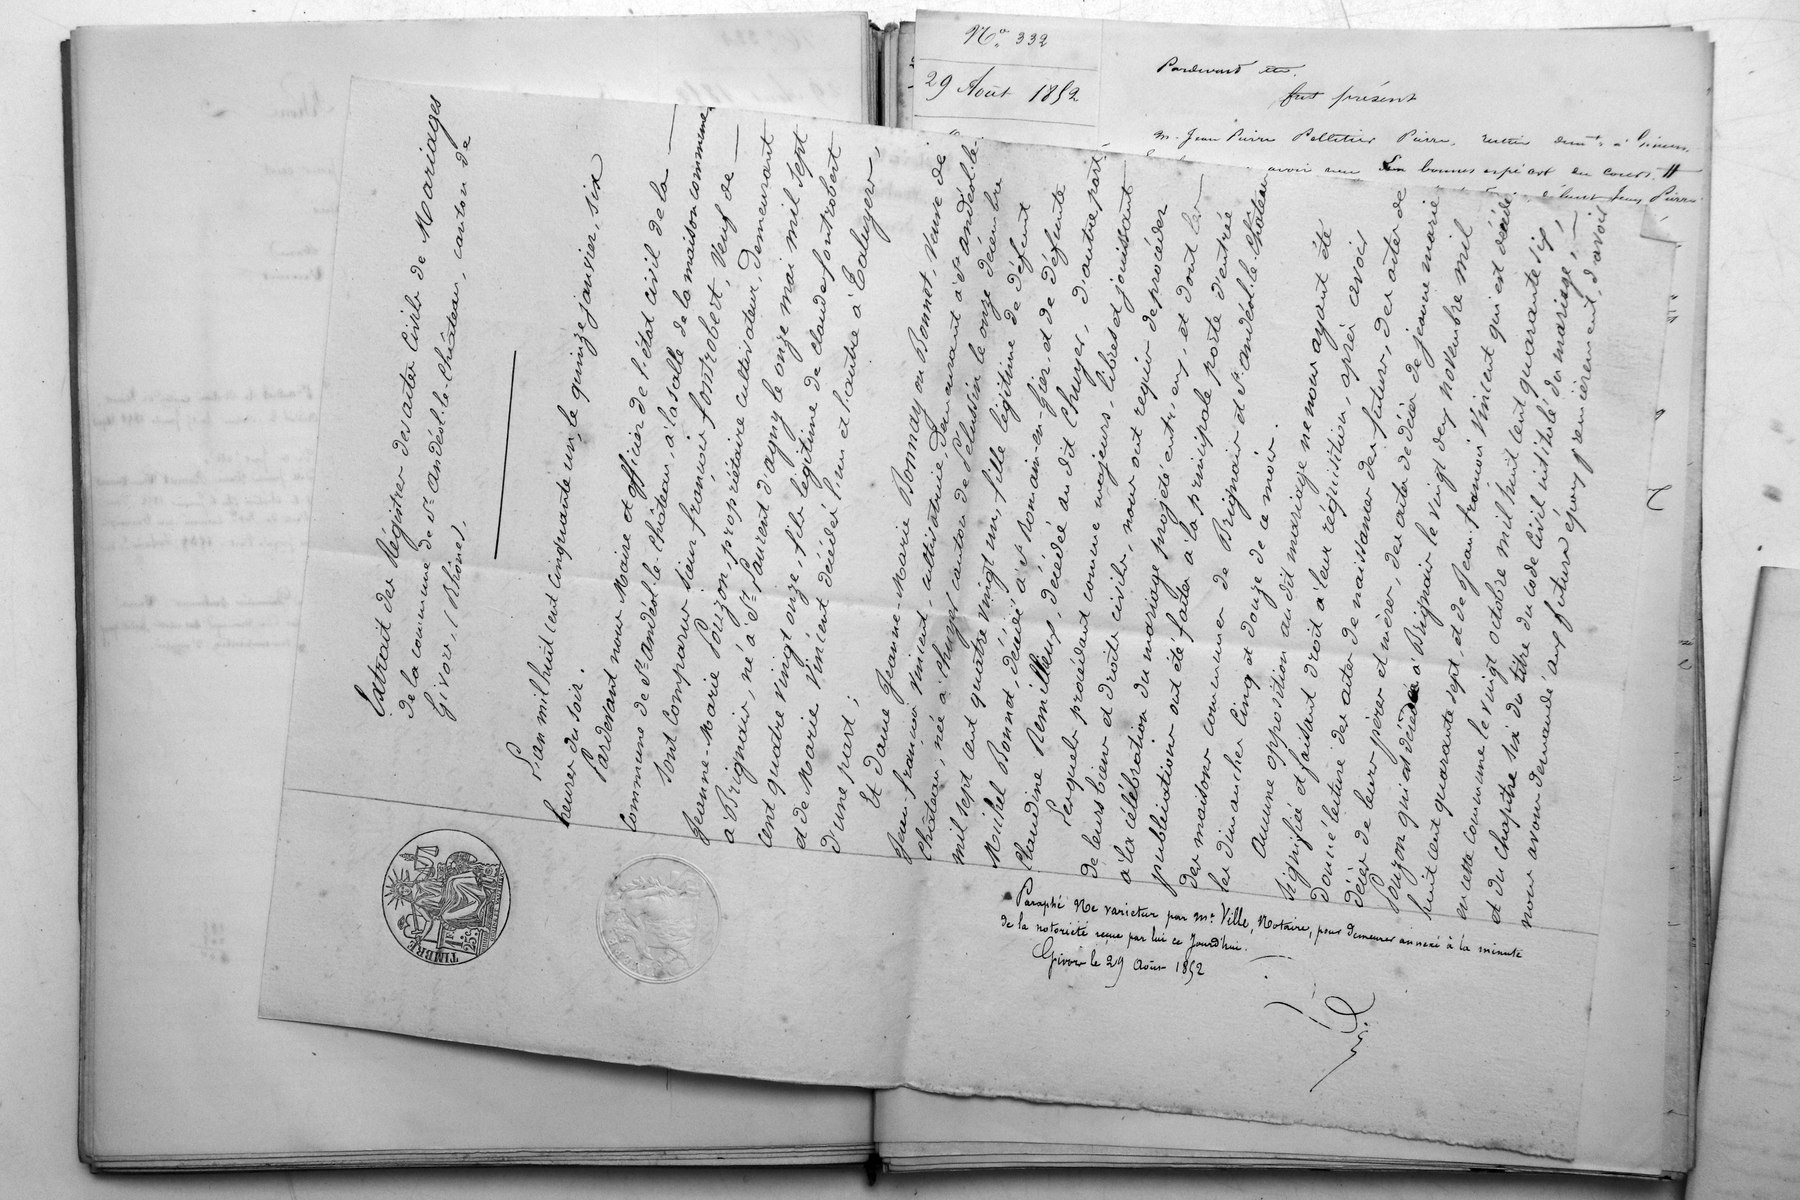 N.° 332
29 Août 1852
Pardevant etc.
fut présent
M. Jean Pierre Pelletier Pierre, rentier demt. à Givors,
avoir reçu en bonnes espèces du cours
Jean Pierre
Extrait des Régistres des actes Civils de Mariages
de la commune de St. andéol-le-Château, canton de
Givors, (Rhône).
L'an mil huit cent cinquante un, le quinze janvier, six
heures du soir.
Pardevant nous Maire et officier de l'état civil de la
Commune de St. andéol le Château, à la salle de la maison commune
Sont Comparus sieur françois fontrobert, veuf de
Jeanne-Marie Pouzon, propriétaire cultivateur, demeurant
à Brignais, né à St. Laurent d'agny le onze mai mil sept
cent quatre vingt onze, fils légitime de claude fontrobert
et de Marie Vincent décédés l'un et l'autre à Taluyers,
d'une part;
Et dame Jeanne-Marie Bonnay ou Bonnet, veuve de
Jean-françois Vincent, cultivatrice, demeurant à St. andéol-le-
Château, née à Chuyer canton de Pélussin le onze décembre
mil sept cent quatre vingt un, fille légitime de défunt
Michel Bonnet, décédé à St. Romain-en-gier, et de défunte
Claudine Remilleux, décédée au dit Chuyer, d'autre part,
Lesquels procédant comme majeurs, libres et jouissant
de leurs biens et droits civils, nous ont requis de procéder
à la célébration du mariage projeté entr'eux, et dont les
publications ont été faites à la principale porte d'entrée
des maisons communes de Brignais et St. andéol-le-Château
les dimanches cinq et douze de ce mois.
Aucune opposition au dit mariage ne nous ayant été
signifiée et faisant droit à leur réquisition, après avoir
donné lecture des actes de naissances des futurs, des actes de
décès de leurs pères et mères, des actes de décès de jeanne marie
Pouzon qui est décédée à Brignais le vingt deux novembre mil
huit cent quarante sept, et de Jean-françois Vincent qui est décédé
en cette commune le vingt octobre mil huit cent quarante six,
et du chapitre six du titre du code Civil intitulé du mariage,
nous avons demandé aux futurs époux premièrement, d'avoir
TIMBRE
1 F.
25 C.
Paraphé Ne varietur par me. Ville, Notaire, pour demeurer annexé à la minute
de la notoriété reçue par lui ce Jourd'hui.
Givors le 29 Août 1852